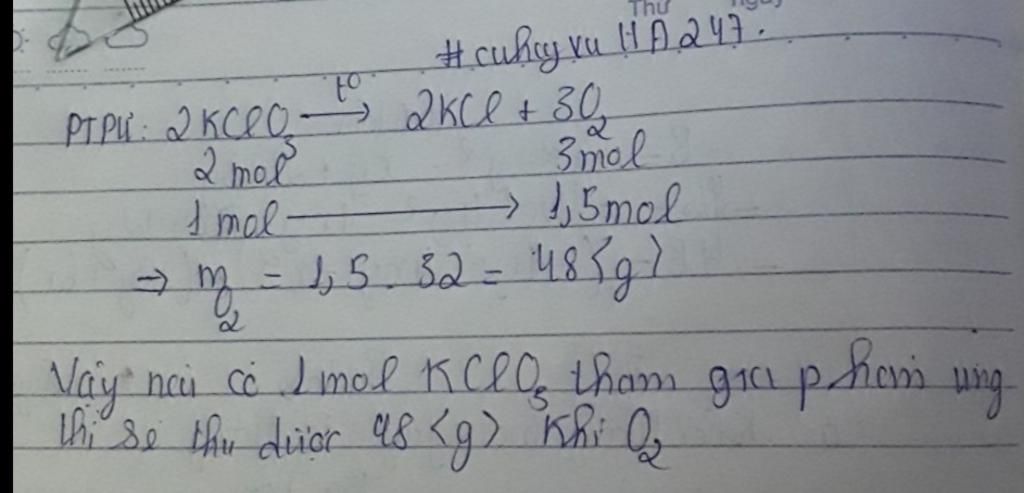 Thứ
Ngày
#cuhcyvu HA247.
PTPƯ: 2KClO₃ —t⁰→ 2KCl + 3O₂
2 mol 3 mol
1 mol ⟶ 1,5 mol
⇒ m O₂ = 1,5 . 32 = 48 <g>
Vậy nếu có 1 mol KClO₃ tham gia phản ứng
thì sẽ thu được 48 <g> khí O₂